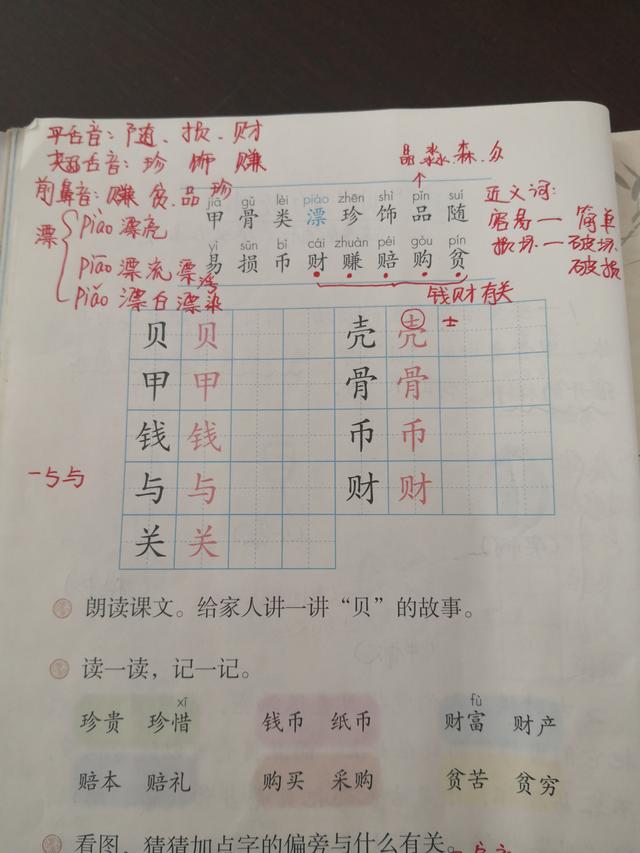 平舌音:随、损、财
翘舌音:珍 饰 赚
前鼻音:赚 贫、品 珍
漂
piào 漂亮
piāo 漂流 漂泊
piǎo 漂白 漂染
晶、淼、森、众
近义词:
容易— 简单
损坏—破坏
破损
jiǎ gǔ lèi piào zhēn shì pǐn suí
甲 骨 类 漂 珍 饰 品 随
yì sǔn bì cái zhuàn péi gòu pín
易 损 币 财 赚 赔 购 贫
钱财有关
贝 贝 壳 壳 士
甲 甲 骨 骨
钱 钱 币 币
一与与 与 与 财 财
关 关
朗读课文。给家人讲一讲“贝”的故事。
读一读,记一记。
xī fù
珍贵 珍惜 钱币 纸币 财富 财产
赔本 赔礼 购买 采购 贫苦 贫穷
看图,猜猜加点字的偏旁与什么有关。